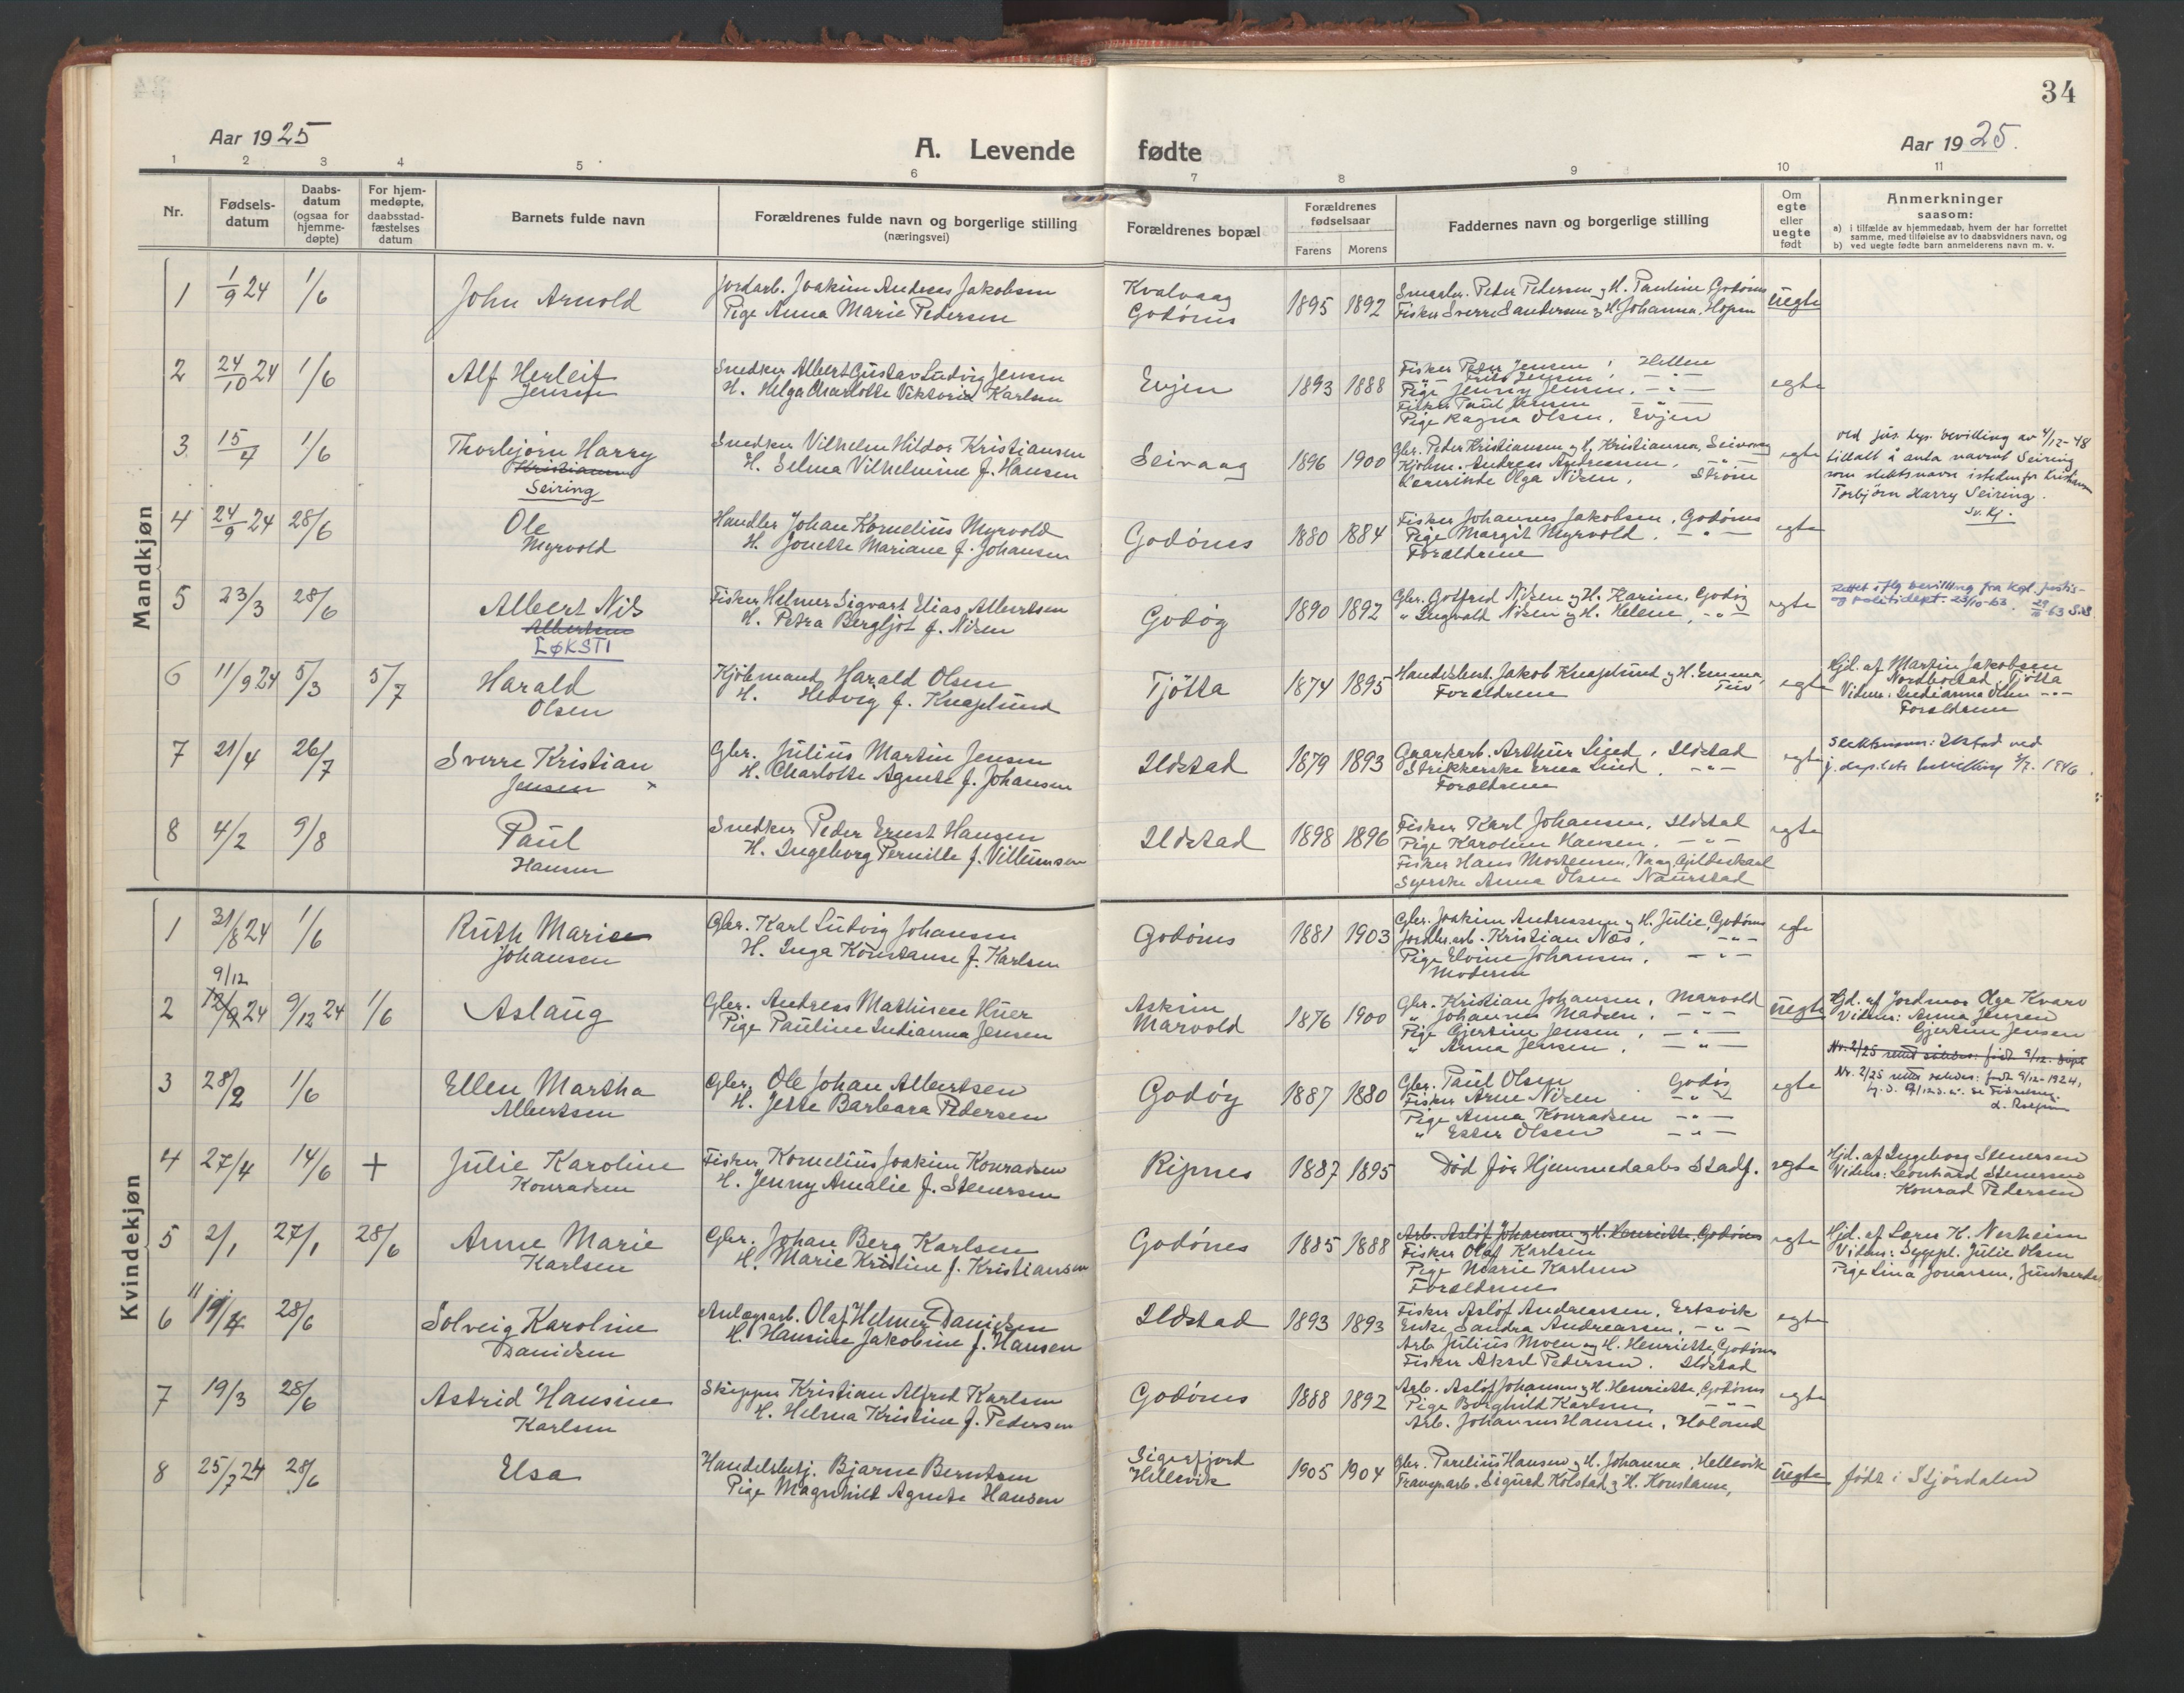 34
Aar 1925
A. Levende fødte
Aar 1925.
1 2 3 4 5 6 7 8 9 10 11
Nr.
Fødsels-
datum
Daabs-
datum
(ogsaa for
hjemme-
døpte)
For hjem-
medøpte,
daabsstad-
fæstelses
datum
Barnets fulde navn
Forældrenes fulde navn og borgerlige stilling
(næringsvei)
Forældrenes bopæl
Forældrenes
fødselsaar
Farens Morens
Faddernes navn og borgerlige stilling
Om
egte
eller
uegte
født
Anmerkninger
saasom:
a) i tilfælde av hjemmedaab, hvem der har forrettet
samme, med tilføielse av to daabsvidners navn, og
b) ved uegte fødte barn anmelderens navn m. v.
Mandkjøn
1 1/9 24 1/6 John Arnold
Jordarb. Joakim Andreas Jakobsen
Pige Anna Marie Pedersen
Kvalvaag
Godønes
1895 1892
Smaabr. Peder Pedersen og H. Pauline Godønes
Fisker Sverre Sandersen og H. Johanna, Hopen
uegte
2 24/10 24 1/6 Alf Herleif
Jensen
Snedker Albert Gustav Ludvig Jensen
H. Helga Charlotte Viktoria Karlsen
Evjen
1893 1888
Fisker Peder Jensen, Hellne
Pige Jenny Jensen, - " -
Fisker Paul Jensen - " -
Pige Ragna Olsen, Evjen
egte
3 15/4 1/6 Thorbjørn Harry
Kristiansen
Seiring
Snedker Vilhelm Hildor Kristiansen
H. Selma Vilhelmine f. Hansen
Seivaag
1896 1900
Gbr. Peder Kristiansen og H. Kristianna, Seivaag
Kjøbm. Andreas Andreassen, - " -
Lærerinde Olga Nilsen, Strøm
egte
ved jus. dep. bevilling av 4/12-48
tillatt å anta navnet Seiring
som slektsnavn istedenfor Kristiansen
Torbjørn Harry Seiring.
Sv. Kj.
4 24/9 24 28/6 Ole
Myrvold
Handler Johan Kornelius Myrvold
H. Jonette Mariane f. Johansen
Godønes
1880 1884
Fisker Johannes Jakobsen, Godønes
Pige Margit Myrvold, - " -
Forældrene
egte
5 23/3 28/6 Albert Nils
Albertsen
LØKSTI
Fisker Helmer Sigvart Elias Albertsen
H. Petra Bergljot f. Nilsen
Godøy
1890 1892
Gbr. Gotfred Nilsen og H. Karine, Godøy
" Ingvald Nilsen og H. Helene, - " -
egte
Rettet iflg bevilling fra Kgl. justis-
og politidept. 23/10-63.
6 11/9 24 5/3 5/7 Harald
Olsen
Kjøbmand Harald Olsen
H. Hedvig f. Knaplund
Tjøtta
1874 1895
Handelsbest. Jakob Knaplund og H. Emma,
Forældrene
egte
Hjd. af Martin Jakobsen
Nordbostad, Tjøtta
Vidner: Indianna Olsen - " -
Forældrene
7 21/4 26/7 Sverre Kristian
Jensen x
Gbr. Julius Martin Jensen
H. Charlotte Agnete f. Johansen
Ildstad
1879 1893
Gaardarb. Arthur Lind, Ildstad
Strikkerske Erna Lind, - " -
Forældrene
egte
Slektsnavn: Ilstad ved
j. dep. bevilling 1946.
8 4/2 9/8 Paul
Hansen
Snedker Peder Ernst Hansen
H. Ingeborg Pernille f. Villumsen
Ildstad
1898 1896
Fisker Karl Johansen, Ildstad
Pige Karoline Hansen, - " -
Fisker Hans Mortensen, Vaag, Gildeskaal
Syerske Anna Olsen Naurstad
egte
Kvindekjøn
1 31/8 24 1/6 Ruth Marie
Johansen
Gbr. Karl Ludvig Johansen
H. Inga Konstanse f. Karlsen
Godønes
1881 1903
Gbr. Joakim Andreassen og H. Julie, Godønes
Jordbr.arb. Kristian Næs, - " -
Pige Elvine Johansen, - " -
Moderen
egte
9/12
2 12/9 24 9/12 24 1/6 Aslaug
Gbr. Andreas Mathisen Huer
Pige Pauline Indianna Jensen
Askim
Marvold
1876 1900
Gbr. Kristian Johansen, Marvold
" Johannes Madsen, - " -
Pige Gjertine Jensen, - " -
" Anna Jensen, - " -
uegte
Hjd. af Jordmor Olga Kvarv
Vidner: Anna Jensen
Gjertine Jensen
Nr. 2/25 rettet født 9/12.
Nr. 2/25 rettet født 9/12-1924,
3 28/2 1/6 Ellen Martha
Albertsen
Gbr. Ole Johan Albertsen
H. Jette Barbara Pedersen
Godøy
1887 1880
Gbr. Paul Olsen Godøy
Fisker Arne Nilsen - " -
Pige Anna Konradsen - " -
" Ester Olsen - " -
egte
4 27/4 14/6 + Julie Karoline
Konradsen
Fisker Kornelius Joakim Konradsen
H. Jenny Amalie f. Stenersen
Ripnes
1887 1895
Død før Hjemmedaabs Stadf.
egte
Hjd. af Ingeborg Stenersen
Vidner: Leonhard Stenersen
Konrad Pedersen
5 2/1 27/1 28/6 Anne Marie
Karlsen
Gbr. Johan Berg Karlsen
H. Marie Kristine f. Kristiansen
Godønes
1885 1888
Arb. Asløf Johansen og H. Henriette, Godønes
Fisker Olaf Karlsen
Pige Marie Karlsen
Forældrene
egte
Hjd. af Lærer K. Nesheim
Vidner: Sygepl. Julie Olsen
Pige Lina Jonassen, Junkerdal
6 19/4 28/6 Solveig Karoline
Danielsen
Anlægsarb. Olaf Helmer Danielsen
H. Hansine Jakobine f. Hansen
Ildstad
1893 1893
Fisker Asløf Andreassen, Ertsvik
Enke Sandra Andreassen, - " -
Arb. Julius Moen og H. Henriette, Godønes
Fisker Aksel Pedersen, Ildstad
egte
7 19/3 28/6 Astrid Hansine
Karlsen
Skipper Kristian Alfred Karlsen
H. Helma Kristine f. Pedersen
Godønes
1888 1892
Arb. Asløf Johansen og H. Henriette, Godønes
Pige Borghild Karlsen, - " -
Arb. Johannes Hansen, Holand
egte
8 25/7 24 28/6 Elsa
Handelsbetj. Bjarne Berntsen
Pige Magnhild Agnete Hansen
Sigerfjord
Hellevik
1905 1904
Gbr. Parelius Hansen og H. Johanna, Hellevik
Transp.arb. Sigurd Kolstad og H. Konstanse,
uegte
født i Stjørdalen